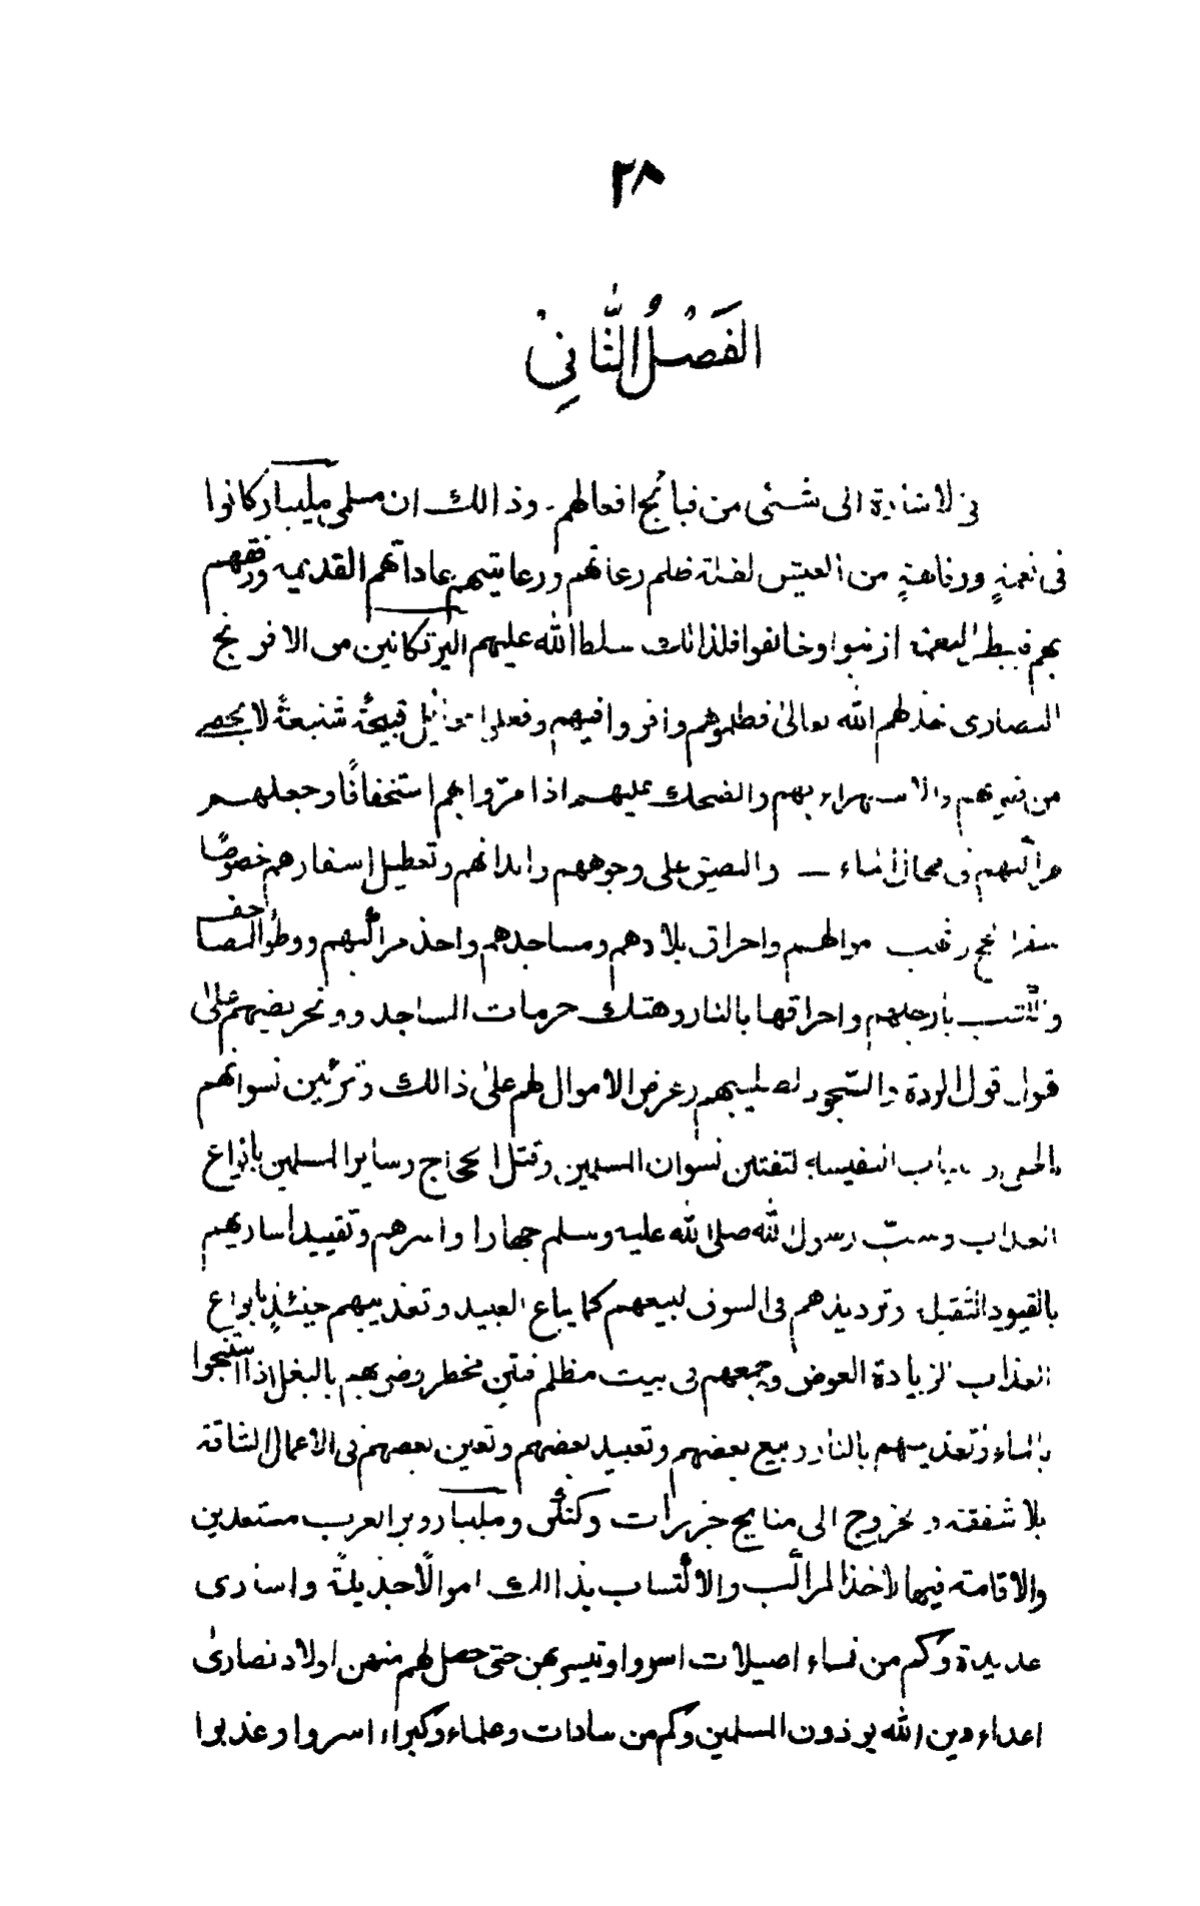 ٢٨
الفَصْلُ الثَّانِیْ
فی الاشارة الی شئی من قبائح افعالهم۔ وذالك ان مسلمی ملیبار كانوا
فی نعمةٍ ورفاهیةٍ من العیش لقلة ظلم رعاتهم ورعایتهم عاداتهم القدیمه ورفقهم
بهم فبطروا النعمة اذنبوا وخالفوا فلذالك سلط الله علیهم البرتكانین من الافرنج
النصاری خذلهم الله تعالیٰ فظلموهم وافسدوا فیهم وفعلوا قبیحة شنیعةً لا یحصی
من ضربهم والاستهزاء بهم والضحك علیهم اذا مرّوا بهم استخفافًا وجعلهم
مراكبهم فی محال الماء — والبصق علی وجوههم وابدانهم وتعطیل اسفارهم خصوصًا
سفر الحج ونهب اموالهم واحراق بلادهم ومساجدهم واخذ مراكبهم ووطؤ المصاحف
والكتب بارجلهم واحراقها بالنار وهتك حرمات المساجد وتحریضهم علیٰ
قبول قول الردة والسّجود لصلیبهم وعرض الاموال لهم علیٰ ذالك وتزئین نسوانهم
بالحلی والثیاب النفیسه لتفتین نسوان المسلمین وقتل الحجاج وسایر المسلمین بانواع
العذاب وسبّ رسول الله صلی الله علیه وسلم جهارا واسرهم وتقیید اساریهم
بالقیود الثقیلة وتردیدهم فی السوق لبیعهم كما یباع العبید وتعذیبهم حینئذٍ بانواع
العذاب لزیادة العوض وجمعهم فی بیت مظلم منتن مخطر وضربهم بالبغل اذا استنجوا
بالماء وتعذیبهم بالنار وبیع بعضهم وتعبید بعضهم وتعین بعضهم فی الاعمال الشاقة
بلا شفقة والخروج الی جزرات وكنكن وملیبار وبر العرب مستعدین
والاقامة فیها لاخذ المراكب والاكتساب بذالك اموالًا جزیلةً واساری
عدیدة وكم من نساء اصیلات اسروا وتیسر بهن حتی حصل لهم منهن اولاد نصاریٰ
اعداء دین الله یوذون المسلمین وكم من سادات وعلماء وكبراء اسروا وعذبوا